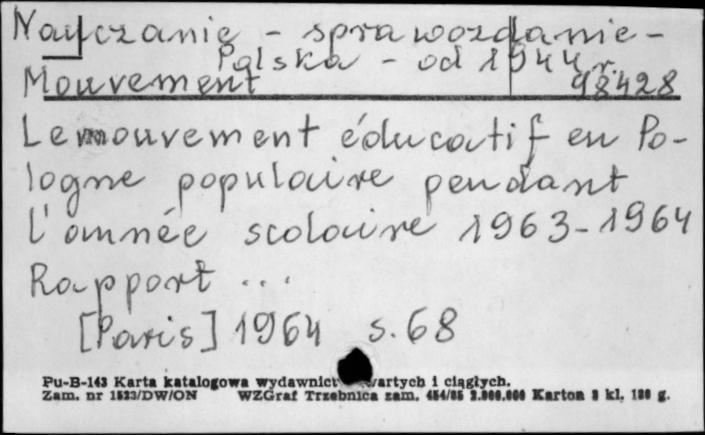 Nauczanie - sprawozdanie -
Polska - od 1944 r.
Mouvement 98428
Le mouvement éducatif en Po-
logne populaire pendant
l'année scolaire 1963-1964
Rapport ...
[Paris] 1964 s. 68
Pu-B-143 Karta katalogowa wydawnict artych i ciągłych.
Zam. nr 1523/DW/ON WZGraf Trzebnica zam. 454/85 2.000.000 Karton kl. g.